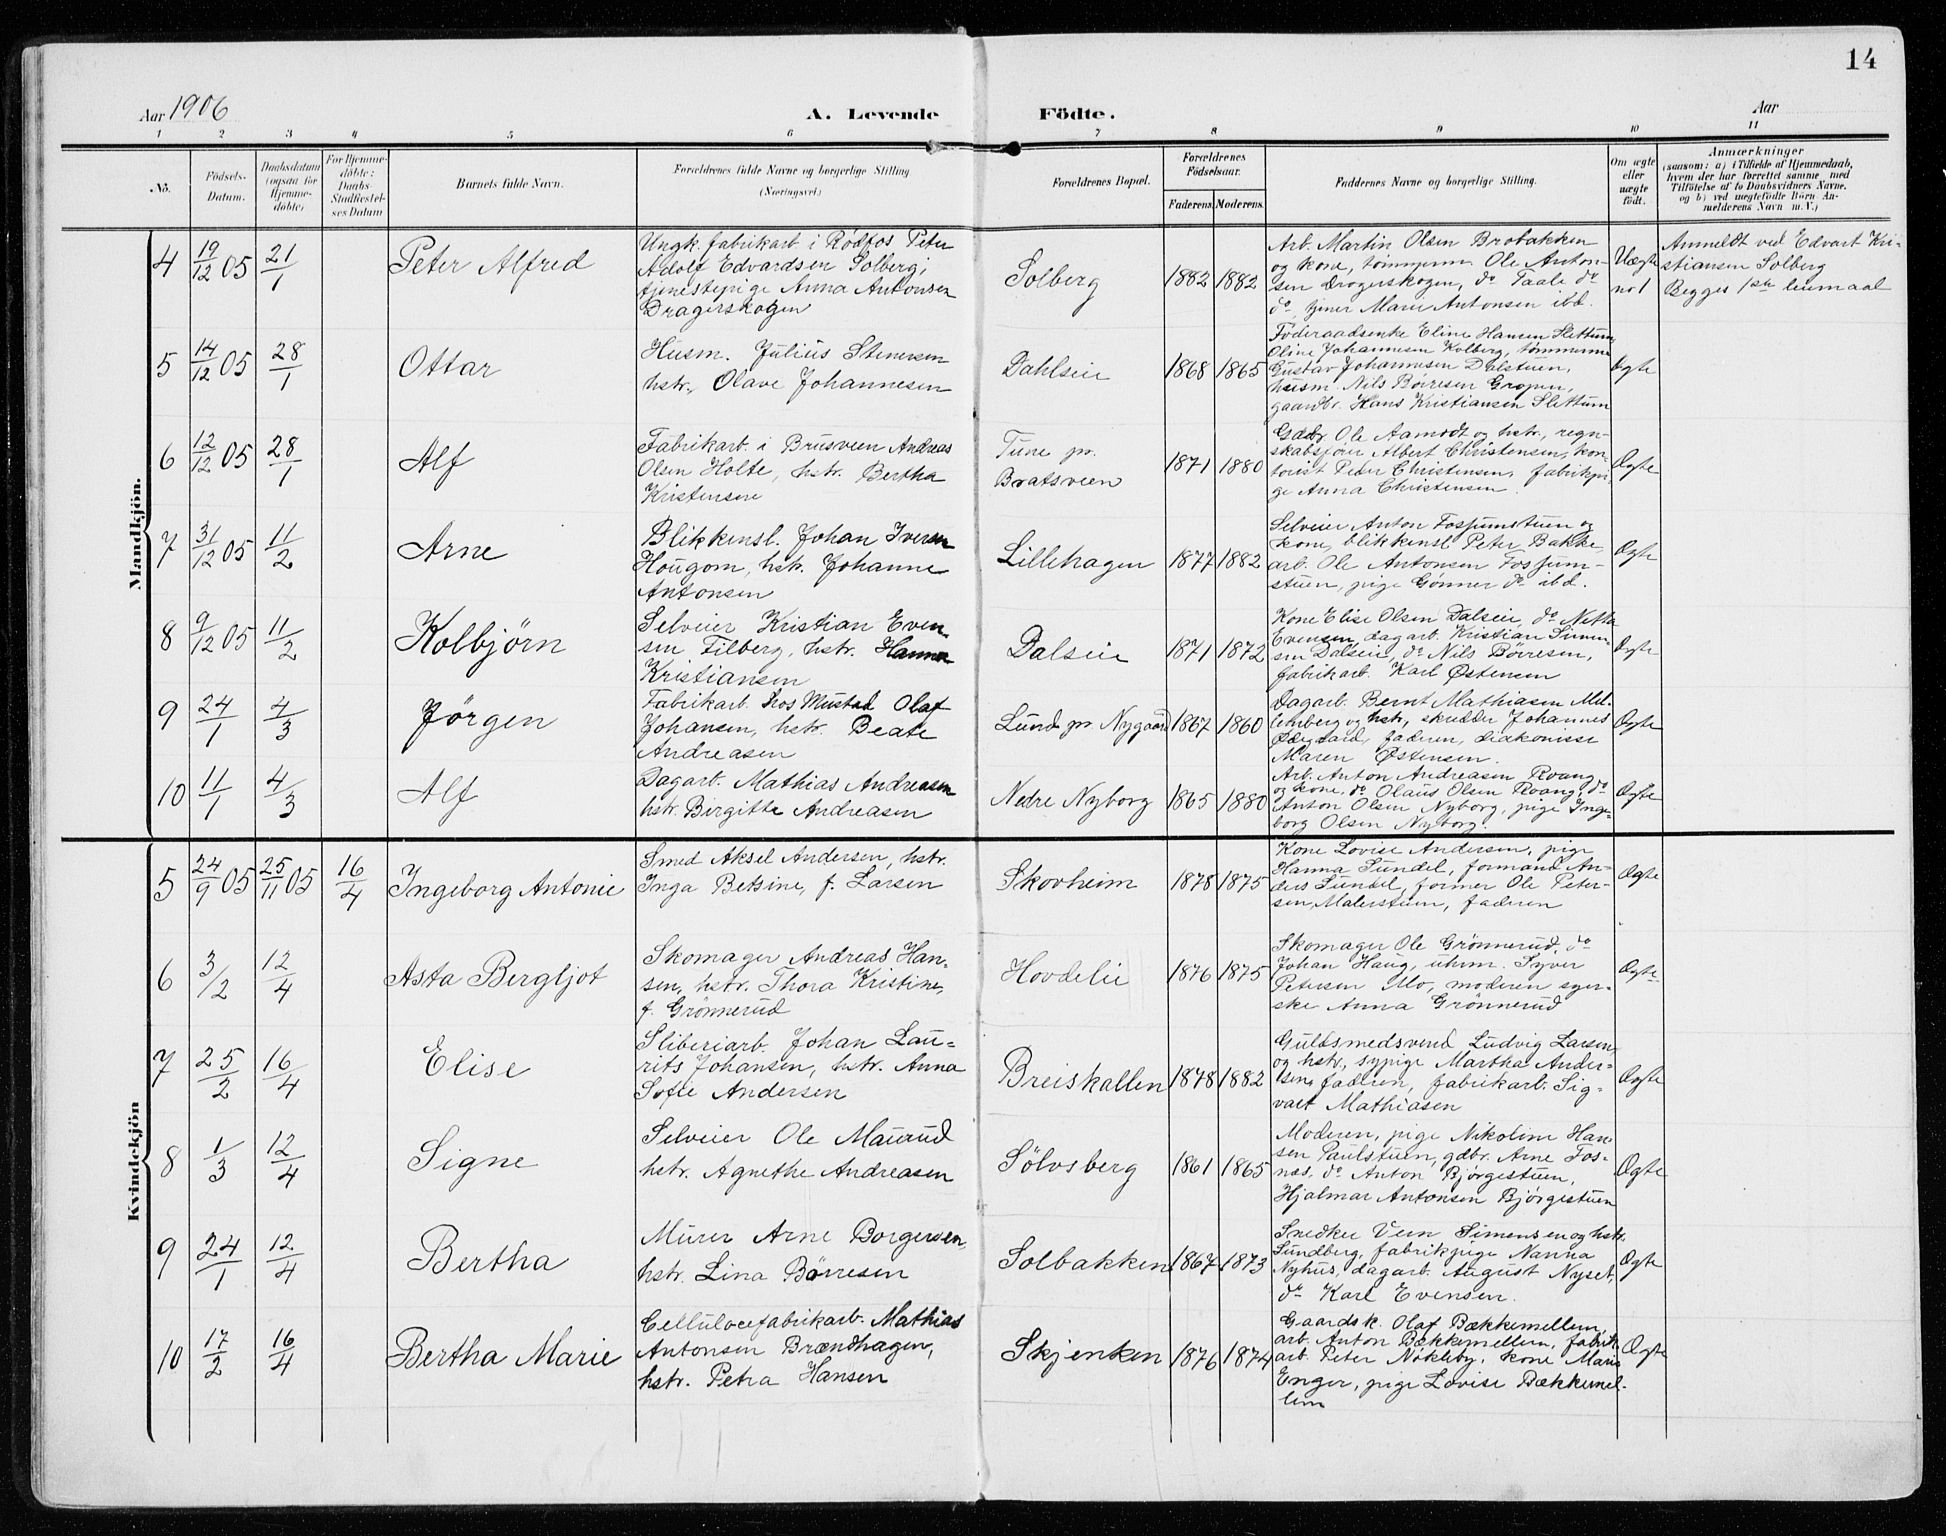 14
Aar 1906
A. Levende Födte.
Aar
1 2 3 4 5 6 7 8 9 10 11
No.
Födsels-
Datum.
Daabsdatum
(ogsaa for
Hjemme-
döbte)
For Hjemme-
döbte:
Daabs-
Stadfæstel-
ses Datum
Barnets fulde Navn.
Forældrenes fulde Navne og borgerlige Stilling
(Næringsvei.)
Forældrenes Bopæl.
Forældrenes
Födselsaar.
Faderens. Moderens.
Faddernes Navne og borgerlige Stilling.
Om ægte
eller
uægte
födt.
Anmærkninger
(saasom: a) i Tilfælde af Hjemmedaab,
hvem der har forrettet samme, med
Tilföielse af to Daabsvidners Navne,
og b) ved uægtefödte Börn An-
melderens Navn m. V.)
Mandkjön.
4 19/12 05 21/1 Peter Alfred
Ungk. fabrikarb. i Rödfos Peter
Adolf Edvardsen Solberg;
tjenestepige Anna Antonsen
Dragerskogen
Solberg 1882 1882
Arb. Martin Olsen Brobakken
og kone, Ole Anton-
sen Dragerskogen, do Taale do
do, Marie Antonsen ibd.
Uægte
no 1
Anmeldt ved Edvart Kri-
stiansen Solberg
Begges 1ste leiermaal
5 14/12 05 28/1 Ottar
Husm. Julius Stenersen
hstr., Olave Johannesen
Dahlseie 1868 1865
Föderaadsenke Eline Hansen Slettum,
Oline Johannesen Kolberg, tømmerm.
Gustav Johannesen Dalstuen,
husm. Nils Børresen Gropen,
gaardbr. Hans Kristiansen Slettum
Ægte
6 12/12 05 28/1 Alf
Fabrikarb. i Brusveen Andreas
Olsen Holte, hstr. Bertha
Kristensen
Tune pr.
Bratsveen 1871 1880
Gdbr. Ole Aamodt og hstr., regn-
skabsfører Albert Christensen, kon-
torist Peder Christensen, fabrikpi-
ge Anna Christensen.
Ægte
7 31/12 05 11/2 Arne
Blikkensl. Johan Iversen
Hougom, hstr. Johanne
Antonsen
Lillehagen 1877 1882
Selveier Anton Fossumstuen og
kone, blikkensl. Peter Bakke,
arb. Ole Antonsen Fossum-
stuen, pige Gønner do ibd.
Ægte
8 9/12 05 11/2 Kolbjörn
Selveier Kristian Even-
sen Filberg, hstr. Hanna
Kristiansen
Dalseie 1871 1872
Kone Elise Olsen Dalseie, do Netta
Evensen, dagarb. Kristian Simen-
sen Dalseie, do Nils Børresen,
fabrikarb. Karl Østensen
Ægte
9 24/1 4/3 Jörgen
Fabrikarb. hos Mustad Olaf
Johansen, hstr. Beate
Andreasen
Lund pr. Nygaard 1867 1860
Dagarb. Bernt Mathiasen Mel-
lemberg og hstr, skredder Johannes
Ødegaard, faderen, diakonisse
Maren Østensen.
Ægte
10 11/1 4/3 Alf
Dagarb. Mathias Andreasen
hstr. Birgitte Andreasen
Nedre Nyborg 1865 1880
Arb. Anton Andreasen Roang
og kone, do Olaus Olsen Roang, do
Anton Olsen Nyborg, pige Inge-
borg Olsen Nyborg.
Ægte
Kvindekjön
5 24/9 05 25/11 05 16/4 Ingeborg Antonie
Smed Aksel Andersen, hstr.
Inga Betsine, f. Larsen
Skovheim 1878 1875
Kone Lovise Andersen, pige
Hanna Sundel, formand An-
ders Sundel, former Ole Peter-
sen Malerstuen, faderen
Ægte
6 3/2 12/4 Asta Bergljot
Skomager Andreas Han-
sen, hstr. Thora Kristine,
f. Grönnerud
Hovdelie 1876 1875
Skomager Ole Grönnerud, do
Johan Haug, uhrm. Syver
Petersen Mo, moderen syer-
ske Anna Grönnerud
Ægte
7 25/2 16/4 Elise
Sliberiarb. Johan Lau-
rits Johansen, hstr. Anna
Sofie Andersen
Breiskallen 1878 1882
Guldsmedsvend Ludvig Larsen
og hstr, sypige Martha Ander-
sen, faderen, fabrikarb. Sig-
vart Mathiasen
Ægte
8 1/3 12/4 Signe
Selveier Ole Maurud
hstr. Agnethe Andreasen
Sölvsberg 1861 1865
Moderen, pige Nikoline Han-
sen Paulstuen, gdbr. Arne Fos-
næs, do Anton Bjørgestuen,
Hjalmar Antonsen Bjørgestuen
Ægte
9 24/1 12/4 Bertha
Murer Arne Borgersen,
hstr. Lina Börresen
Solbakken 1867 1873
Snedker Simensen og hstr.
Lundberg, fabrikpige Nanna
Nyhus, dagarb. August Nyset,
do Karl Evensen.
Ægte
10 17/2 16/4 Bertha Marie
Cellulocefabrikarb. Mathias
Antonsen Brændhagen,
hstr. Petra Hansen
Skjenken 1876 1874
Gaardsk. Olaf Bækkemellem,
arb. Anton Bækkemellem, fabrik-
arb. Peter Nökleby, kone Maria
Enger, pige Lovise Bækkemel-
lem
Ægte